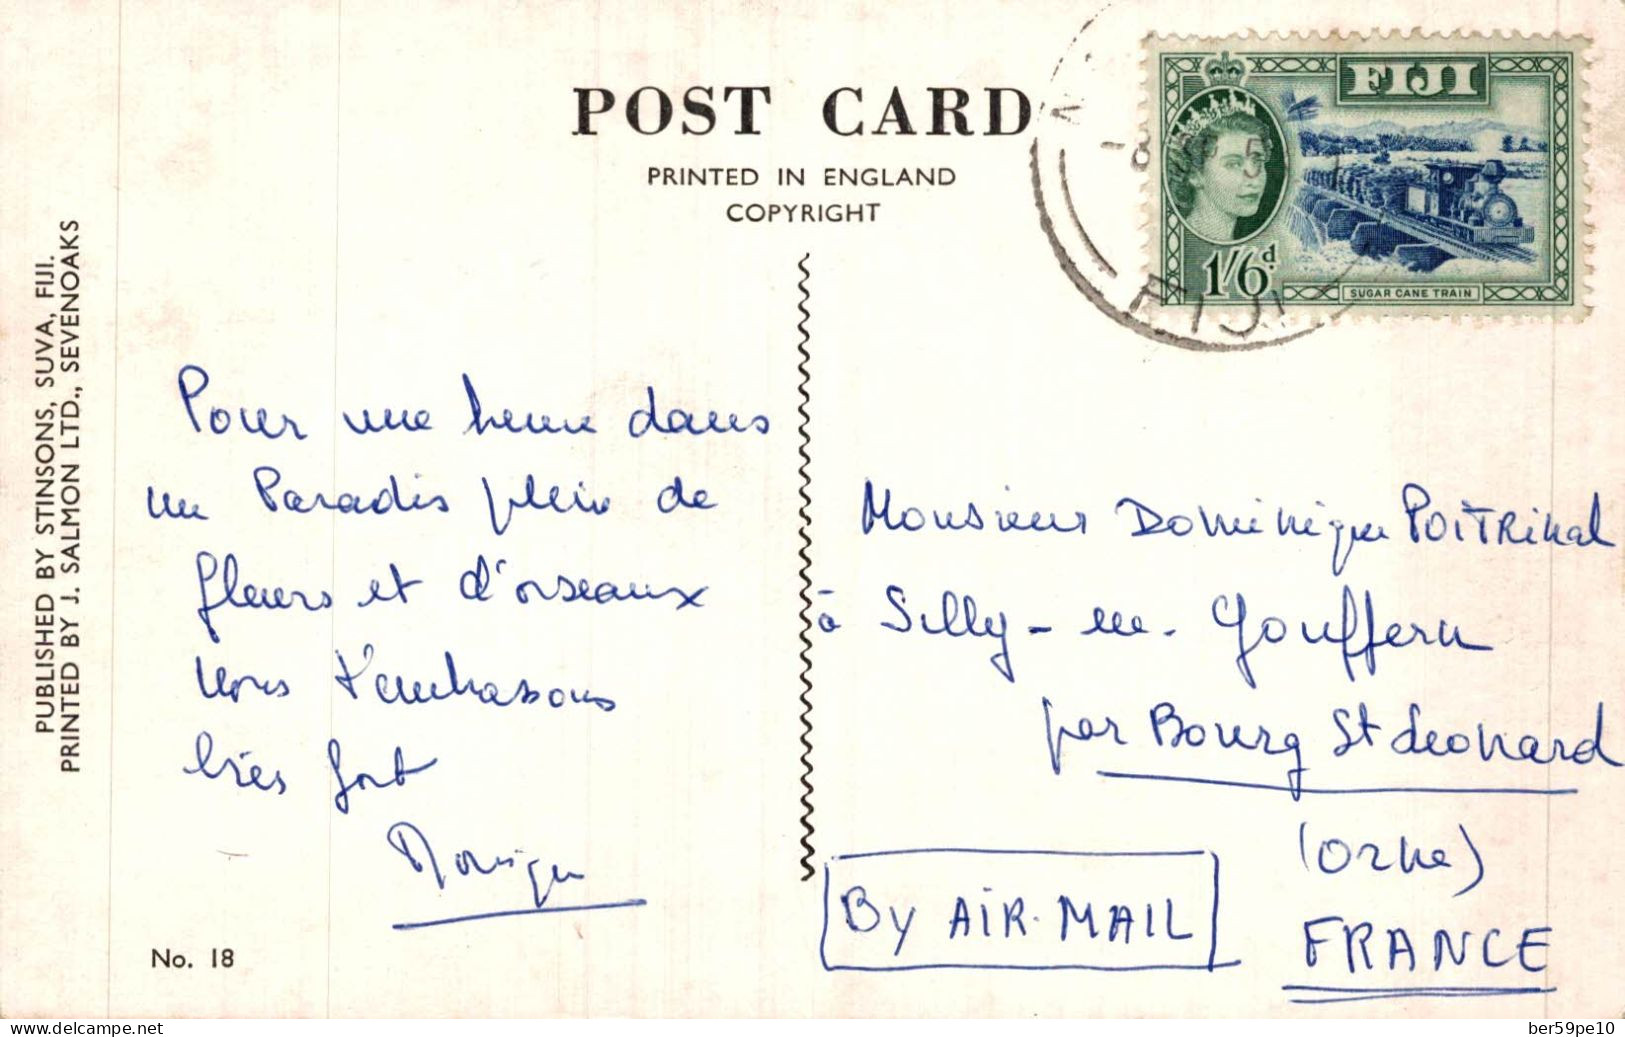 POST CARD
PRINTED IN ENGLAND
COPYRIGHT
FIJI
1/6d.
SUGAR CANE TRAIN
FIJI
PUBLISHED BY STINSONS, SUVA, FIJI.
PRINTED BY J. SALMON LTD., SEVENOAKS
Pour une heure dans
un Paradis plein de
fleurs et d'oiseaux
nous t'embrassons
très fort
Monique
No. 18
Monsieur Dominique POITRINAL
à Silly-en-Gouffern
par Bourg St Leonard
(Orne)
FRANCE
By AIR-MAIL
delcampe.net
ber59pe10